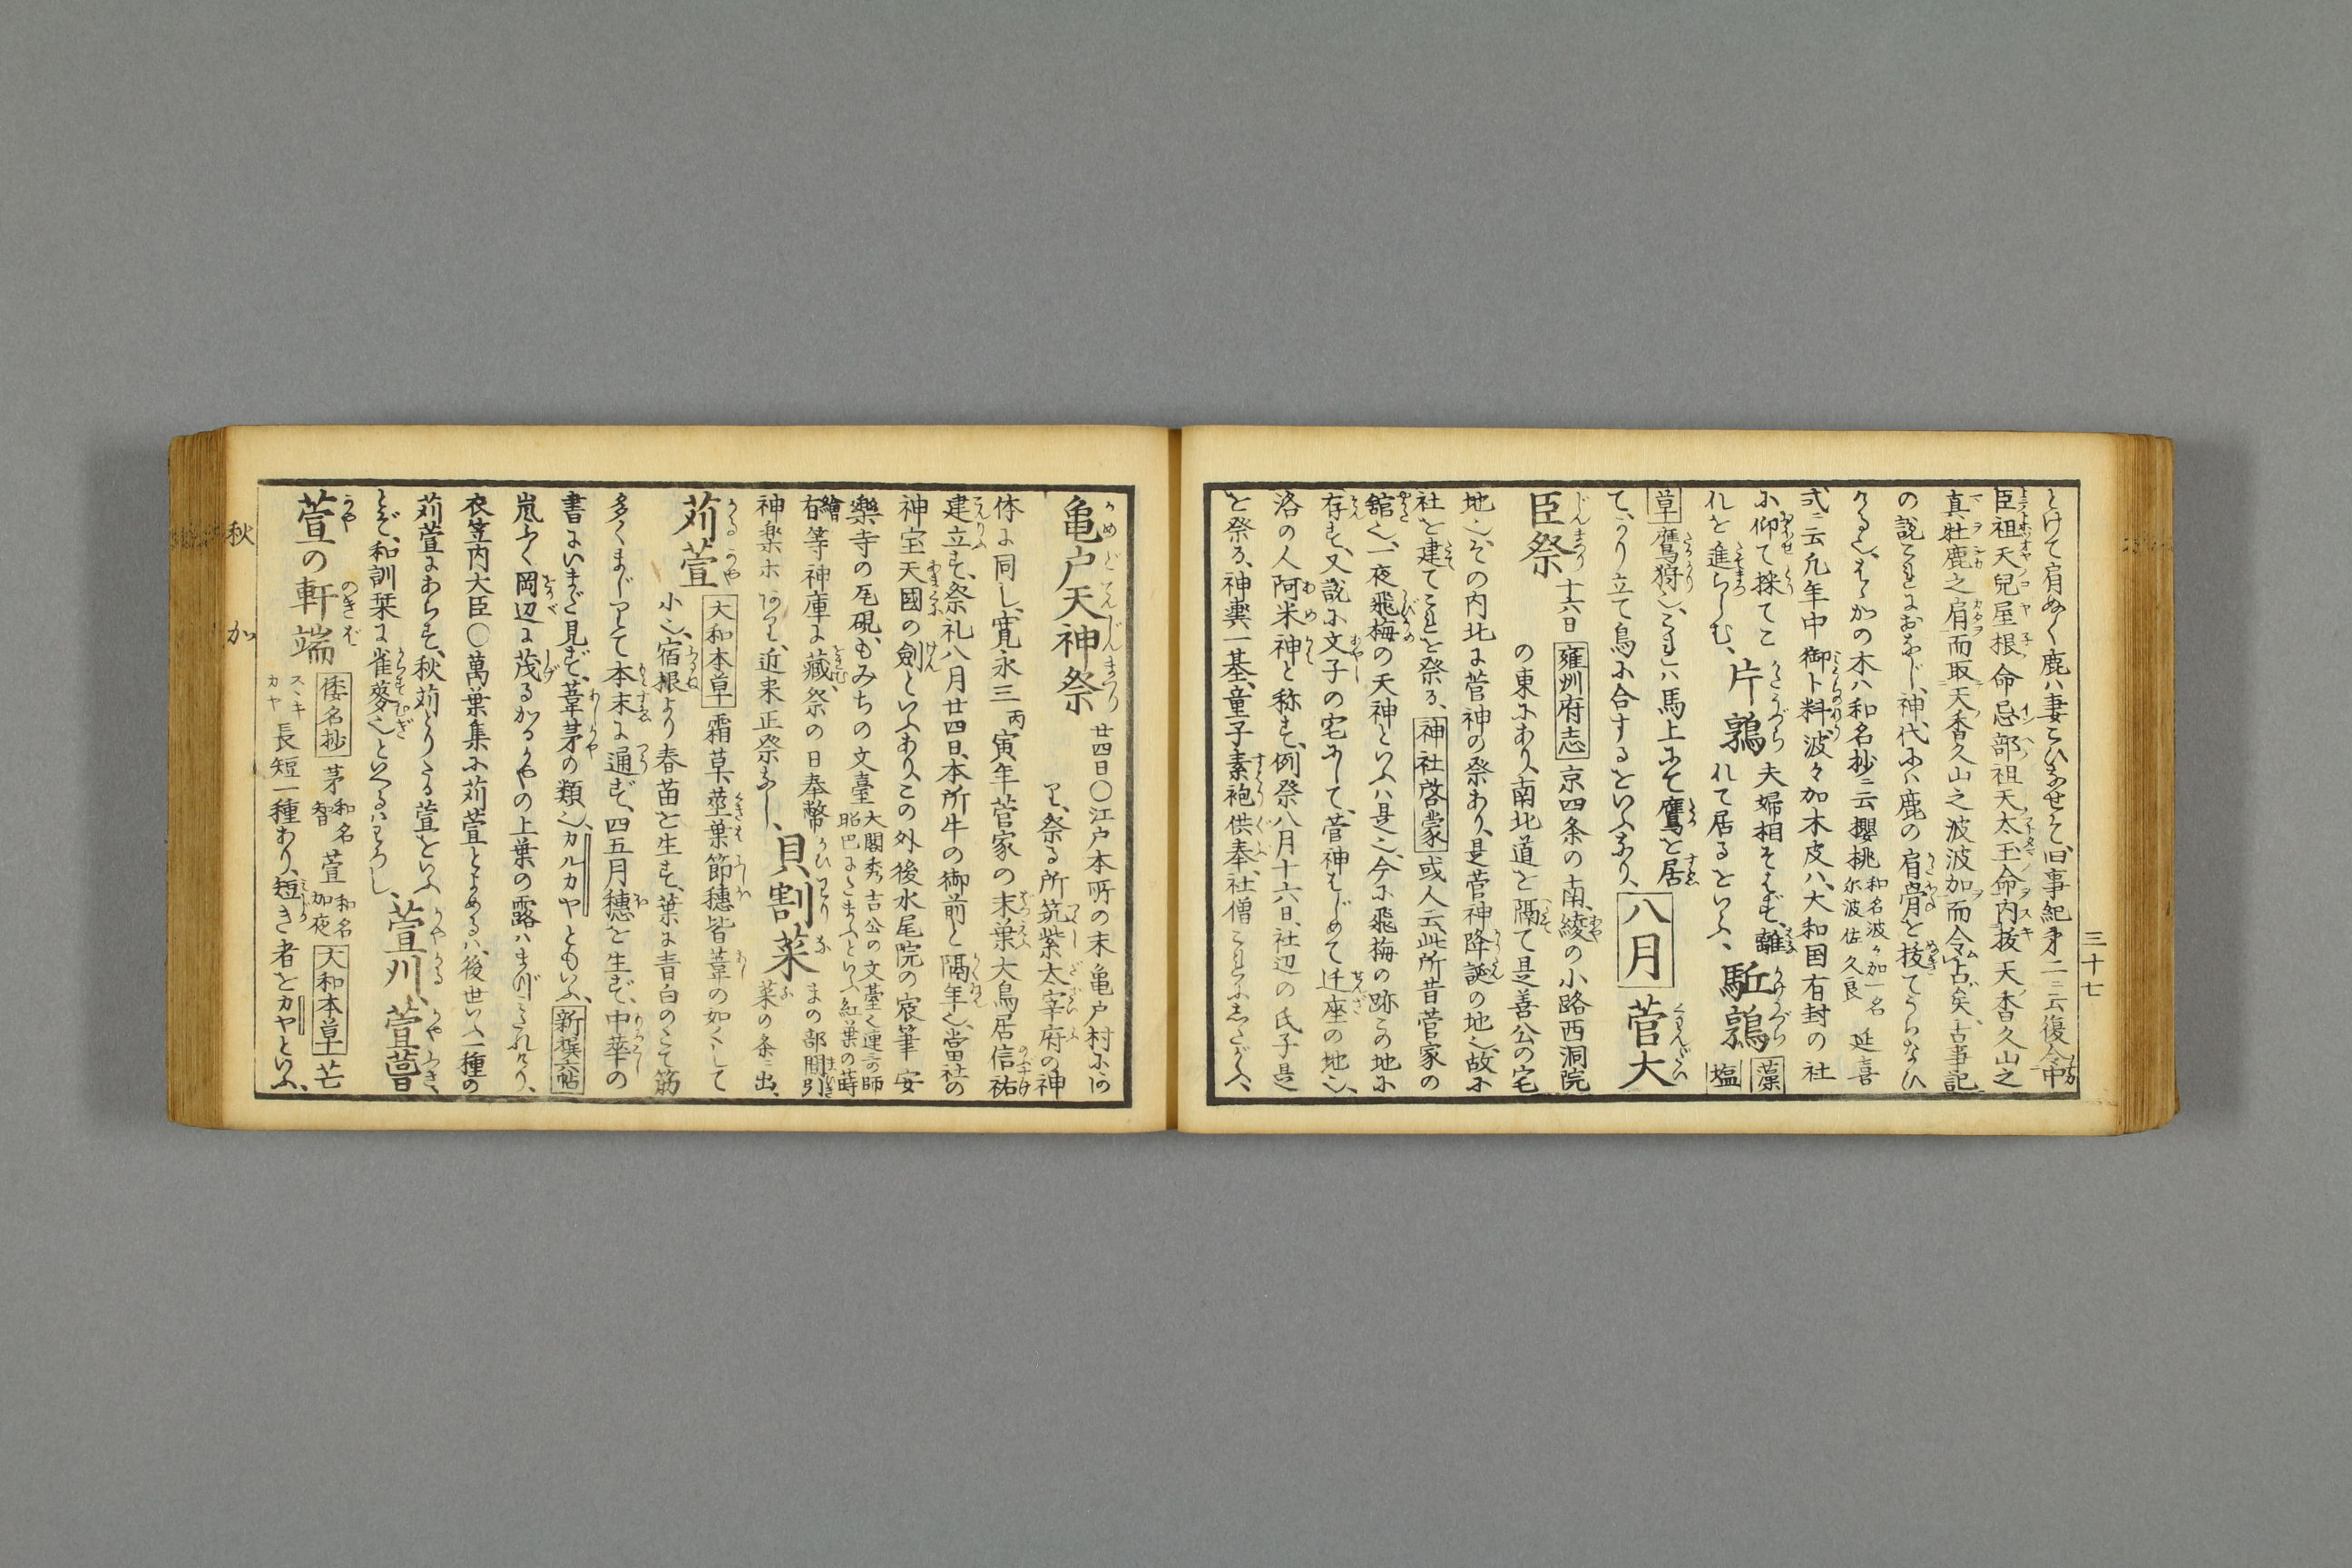 三十七
とけて肩ぬく鹿ハ妻こひなせそ、旧事紀第二ニ云復令中
臣祖天兒屋根命忌部祖天太玉命内抜天香久山之
真牡鹿之肩而取天香久山之波波加而令占矣、古事記
の説これにおなじ、神代にハ鹿の肩骨を抜てうらなひ
ける也、はゝかの木ハ和名抄ニ云櫻桃 和名波々加一名尓波佐久良 延喜
式ニ云凡年中御卜料、波々加木皮ハ、大和国有封の社
に仰て採てこ
れを進らしむ、
片鶉 夫婦相そはず、離
れて居るといふ、
駈鶉 藻塩
草 鷹狩也、これハ馬上にて鷹を居
て、かり立て鳥に合するといふなり、
八月 菅大
臣祭 十六日 雍州府志 京四条の南、綾の小路西洞院
の東にあり、南北道を隔て是善公の宅
地也、その内北に菅神の祭あり、是菅神降誕の地也、故に
社を建てこれを祭る、神社啓蒙 或人云、此所昔菅家の
舘也、一夜飛梅の天神といふハ是也、今に飛梅の跡この地に
存す、又説に文子の宅にして、菅神はじめて迁座の地也、
洛の人阿米神と称す、例祭八月十六日、社辺の氏子是
を祭る、神輿一基、童子素袍供奉、社僧これにしたがふ、
亀戸天神祭 廿四日〇江戸本所の末亀戸村にあ
り、祭る所筑紫太宰府の神
体に同し、寛永三丙寅年菅家の末葉大鳥居信祐
建立す、祭礼八月廿四日、本所牛の御前と隔年也、當社の
神宝天國の劍といふあり、この外後水尾院の宸筆安
樂寺の瓦硯、もみちの文臺 大閤秀吉公の文臺也連哥師昭巴にたまふといふ紅葉の蒔繪
有 等神庫に藏、祭の日奉幣
神楽ホあり、近来正祭なし、
貝割菜 まの部間引
菜の条ニ出、
苅萱 大和本草 霜草、莖葉節穗皆葦の如くして
小也、宿根より春苗を生す、葉に青白のたて筋
多くまじりて本末に通ず、四五月穗を生ず、中華の
書にいまだ見ず、葦茅の類也、カルカヤともいふ、新撰六帖
嵐ふく岡辺に茂るかるかやの上葉の露ハまづみたれけり、
衣笠内大臣〇萬葉集に苅萱とよめるハ、後世いふ一種の
苅萱にあらず、秋苅とりたる萱をいふ
とぞ、和訓栞に雀麥也といへるハわろし、
萱刈、萱葺、
萱の軒端 倭名抄 茅 和名智 萱 和名加夜 大和本草 芒
ススキカヤ 長短一種あり、短き者をカヤといふ、
秋 か